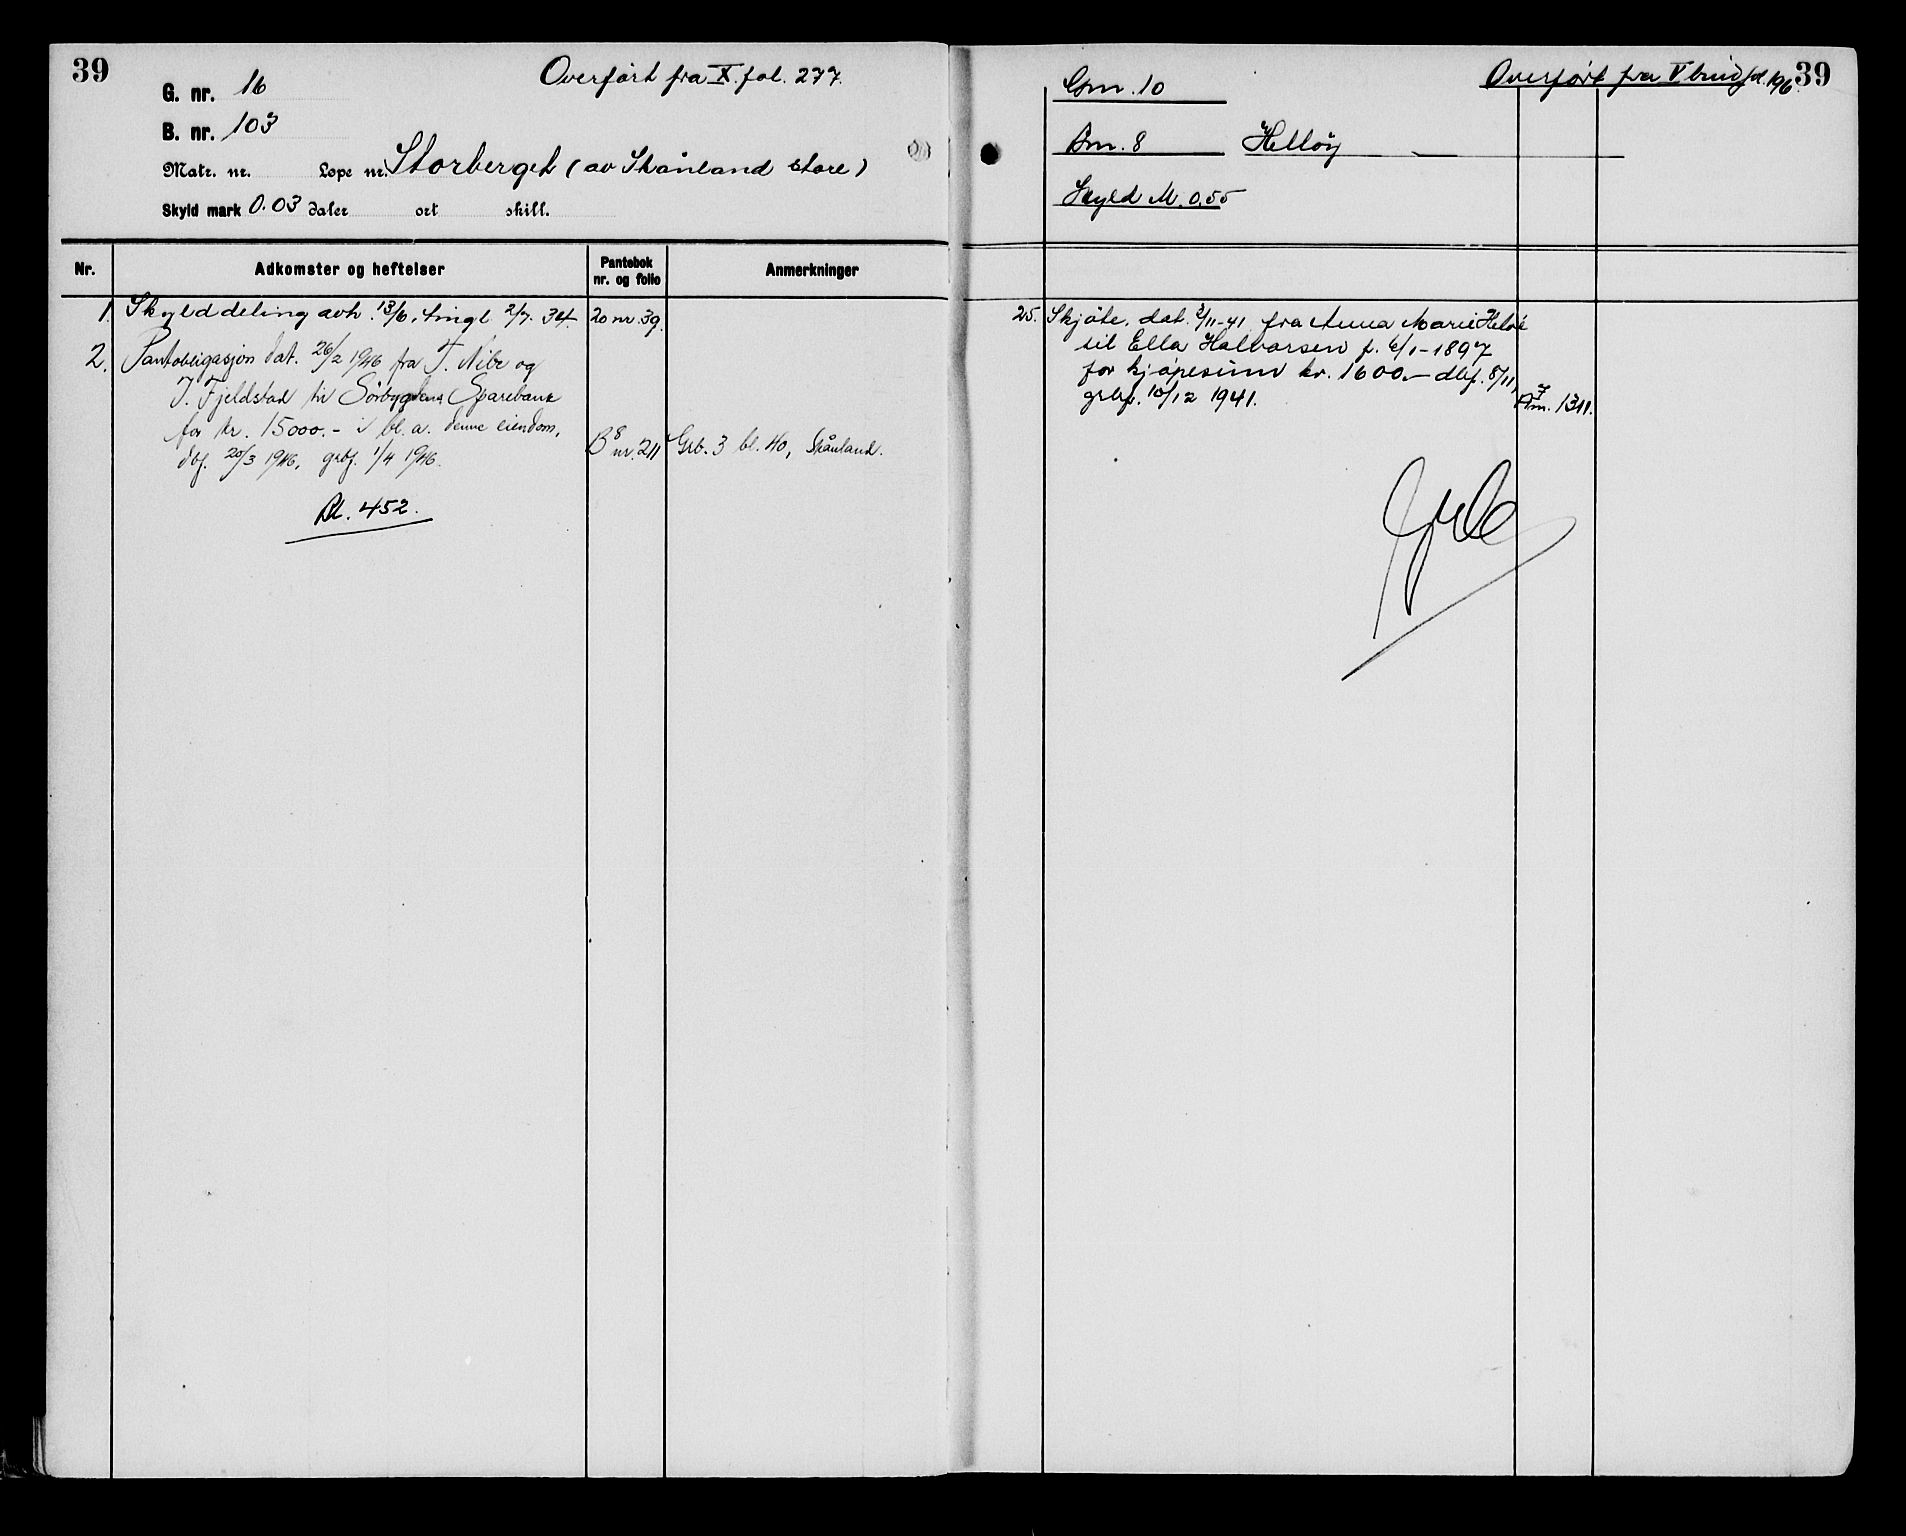 39
Overført fra X. fol. 277.
G. nr. 16
B. nr. 103
Matr. nr. Løpe nr. Storberget (av Skånland store)
Skyld mark 0.03 daler ort skill.
Nr. Adkomster og heftelser Pantebok nr. og folio Anmerkninger
1. Skylddeling avh. 13/6, tingl. 2/7. 34. 20 nr. 39.
2. Pantobligasjon dat. 26/2 1946 fra T. Nibe og
J. Fjeldstad til Sørbygdens Sparebank
for kr. 15000.- i bl. a. denne eiendom,
dbf. 20/3 1946, grbf. 1/4 1946. B 8 nr. 211 Grb. 3 bl. 40, Skånland.
Bl. 452.
Overført fra V bind fol. 196. 39
Gnr. 10
Bnr. 8 Helløy
Skyld M. 0.55
25. Skjøte, dat. /11-41 fra Anna Marie
til Ella Halvorsen f. 6/1-1897
for kjøpesum kr. 1600.- dbf. 8/11,
grbf. 10/12 1941. 7 nr. 1311.